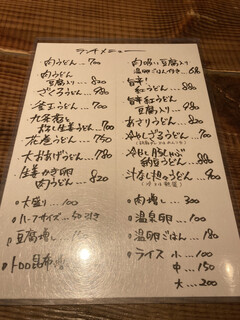 ランチメニュー
肉うどん 700
肉うどん
豆腐入り 820
ざるうどん 980
釜玉うどん 700
九条葱と
おろし生姜うどん 770
花巻うどん 750
大おあげうどん 780
生姜かき卵
肉うどん 820
・大盛り 100
・ハーフサイズ 50引き
・豆腐増し
・トロロ昆布増し
肉吸い豆腐入り
温卵ごはん付き
旨辛!
紅うどん 800
旨辛紅うどん
豆腐入り 900
あさりうどん 820
冷しざるうどん 700
冷し
納豆うどん 880
汁なし担々うどん 900
・肉増し 300
・温泉卵 100
・温卵ごはん 180
・ライス 小 100
中 150
大 200